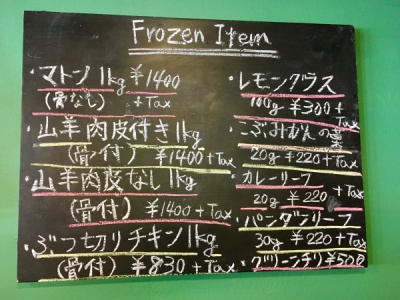 Frozen Item
・マトン 1kg ¥1400
(骨なし) +Tax
・山羊肉皮付き 1kg
(骨付) ¥1400+Tax
・山羊肉皮なし 1kg
(骨付) ¥1400+Tax
・ぶつ切りチキン 1kg
(骨付) ¥830+Tax
・レモングラス
100g ¥300+Tax
・こぶみかんの葉
20g +220+Tax
・カレーリーフ
20g ¥220+Tax
・パンダンリーフ
30g ¥220+Tax
・グリーンチリ ¥500